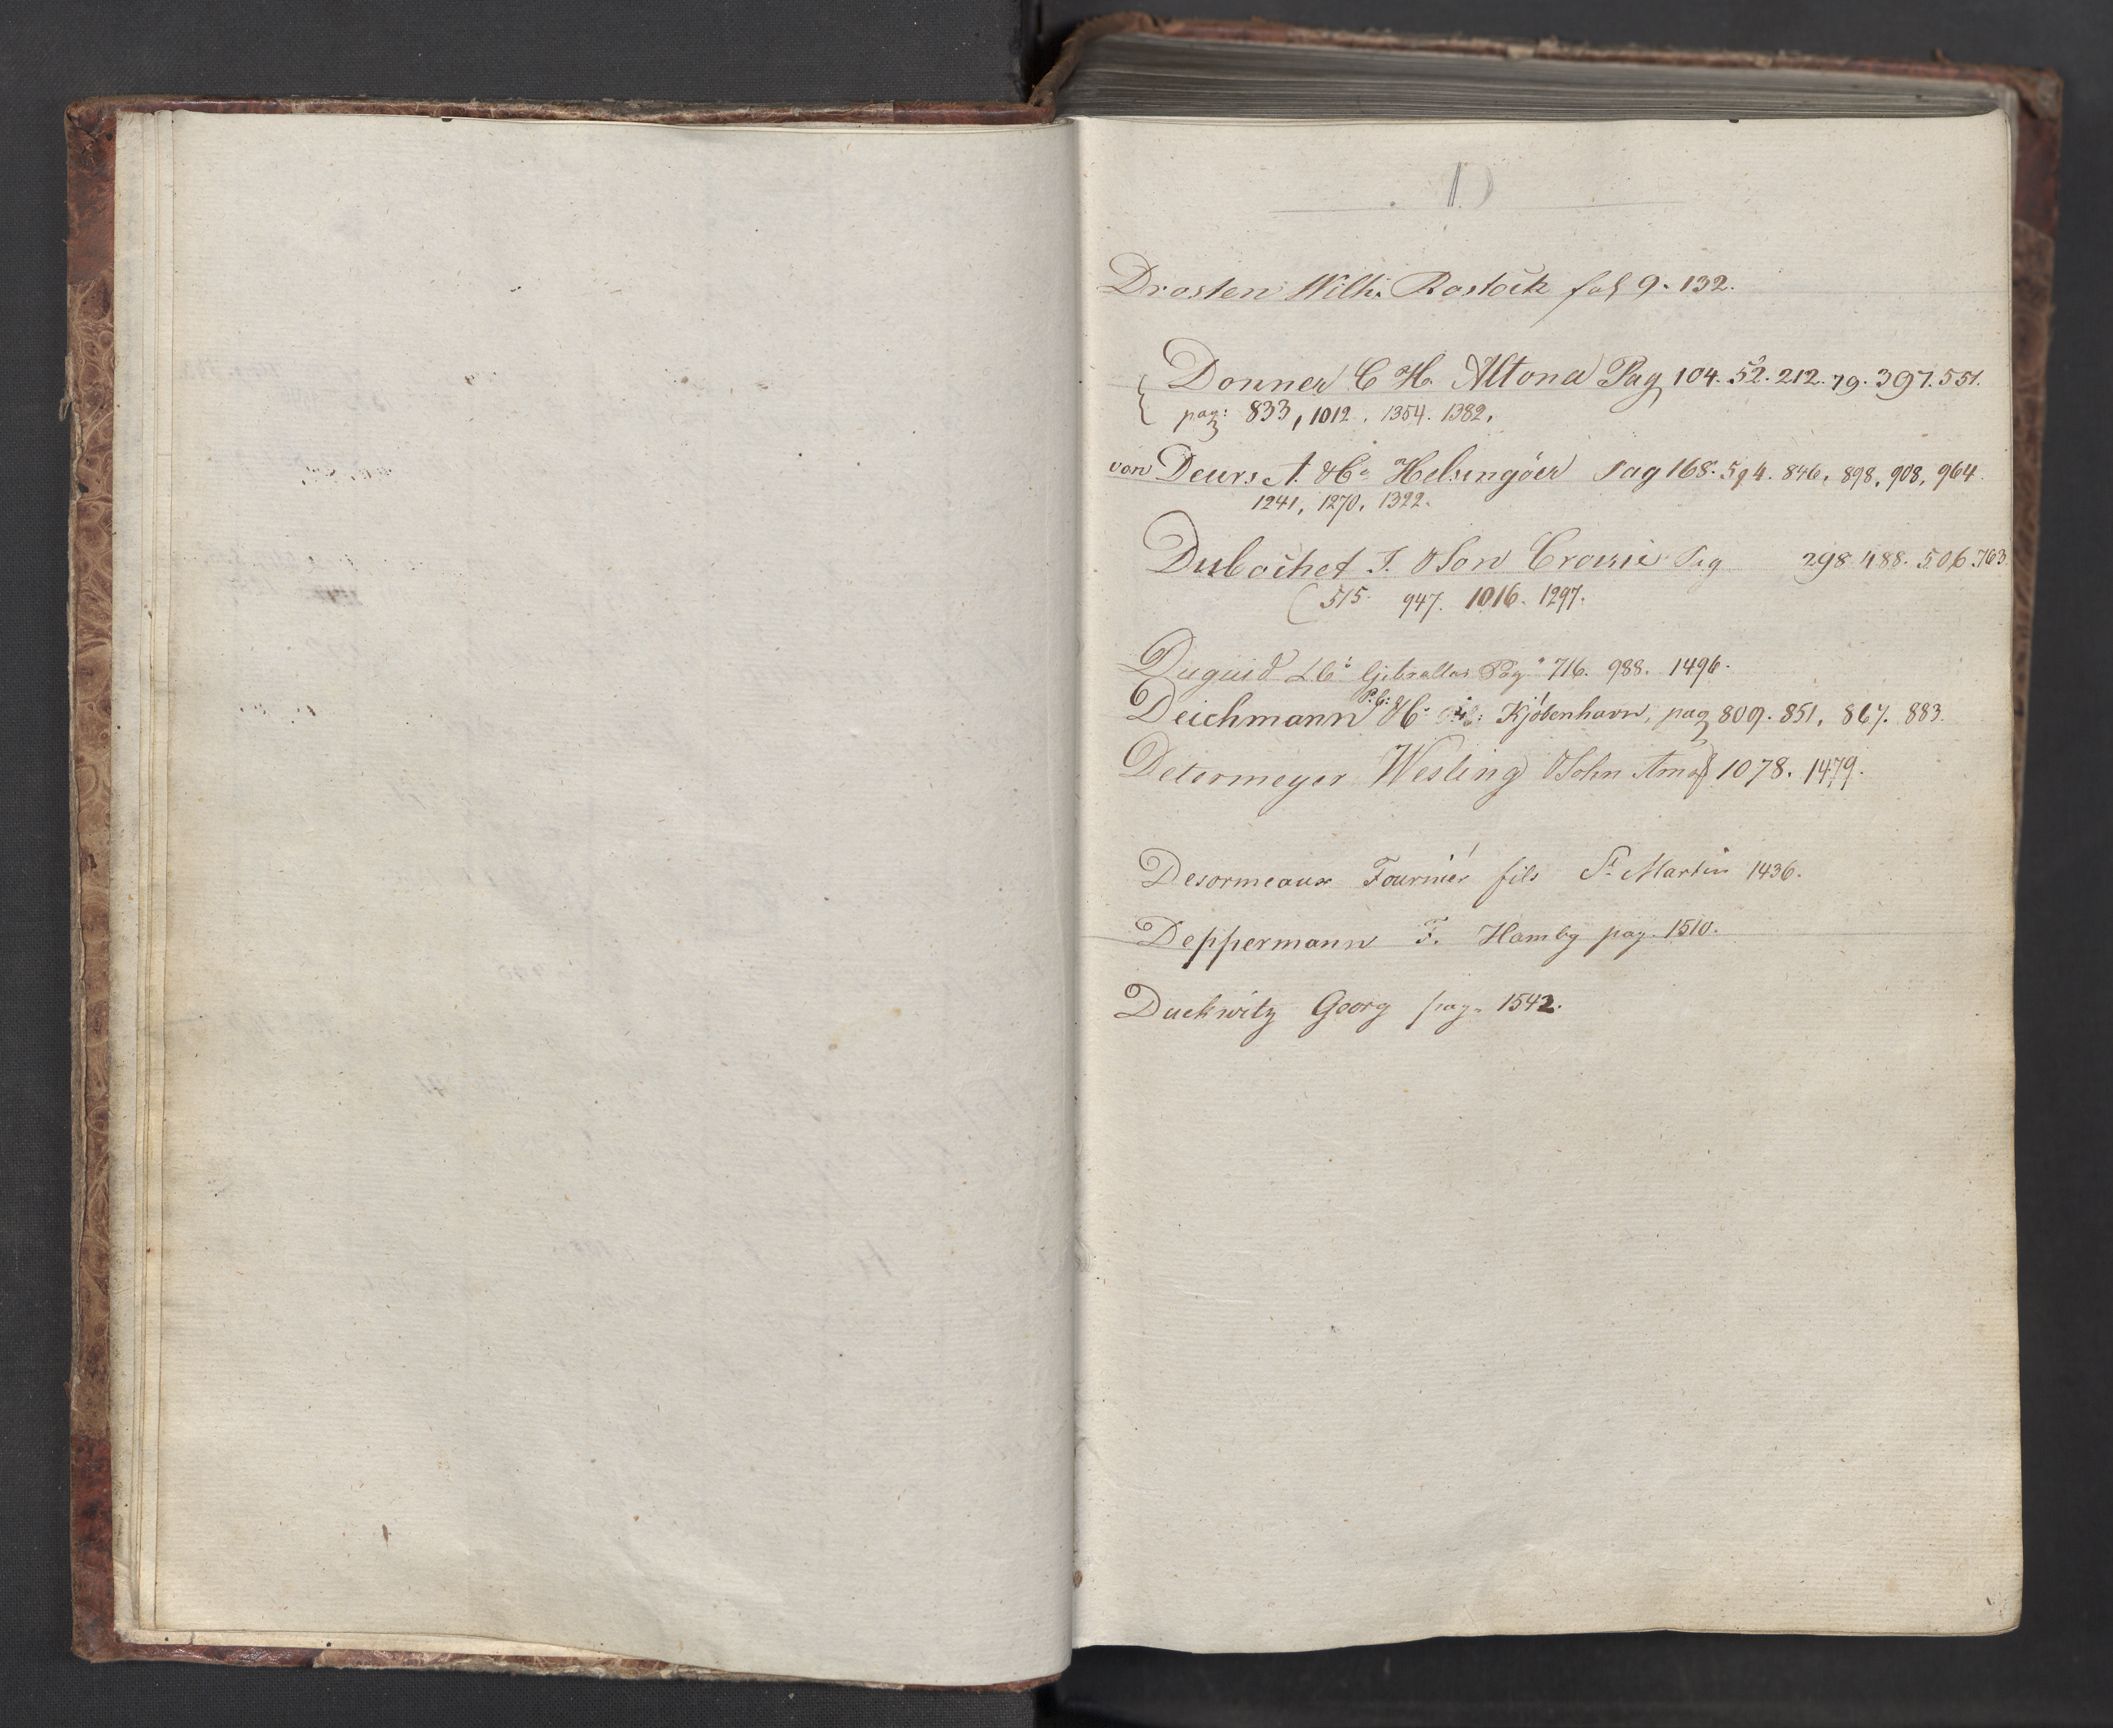 D
Drosten Wilh. Rostock fol 9. 132.
Donner C H. Altona Pag 104. 52. 212. 79. 397. 551.
pag: 833, 1012. 1354. 1382.
von Deurs A. & Co Helsingöer Pag 168. 594. 846. 898, 908, 964.
1241, 1270, 1322.
Dubochet J. & Son Croisic Pag 298 488. 506. 763
515. 947. 1016. 1297.
Duguid & Co Gibraltar Pag 716. 988. 1496.
Deichmann P: C: & Co Kjöbenhavn, pag 809. 851, 867. 883.
Determeyer Wesling & Sohn Ams 1078. 1479.
Desormeaux Fournier fils St Martin 1436.
Deppermann F. Hambg pag. 1510.
Duckwitz Georg pag. 1542.